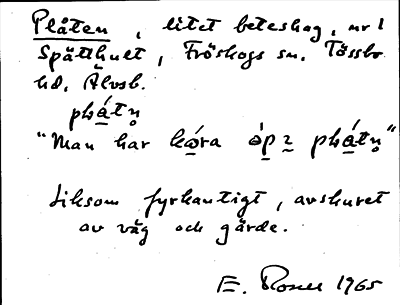 Plåten, litet beteshag, nr 1
Spätthult, Fröskogs sn. Tössbo
hd. Älvsb.
phá̱tn̥
"Man har kó̱ra óp̱ ꝛ phá̱tn̥"
Liksom fyrkantigt, avskuret
av väg och gärde.
E. Rosell 1965